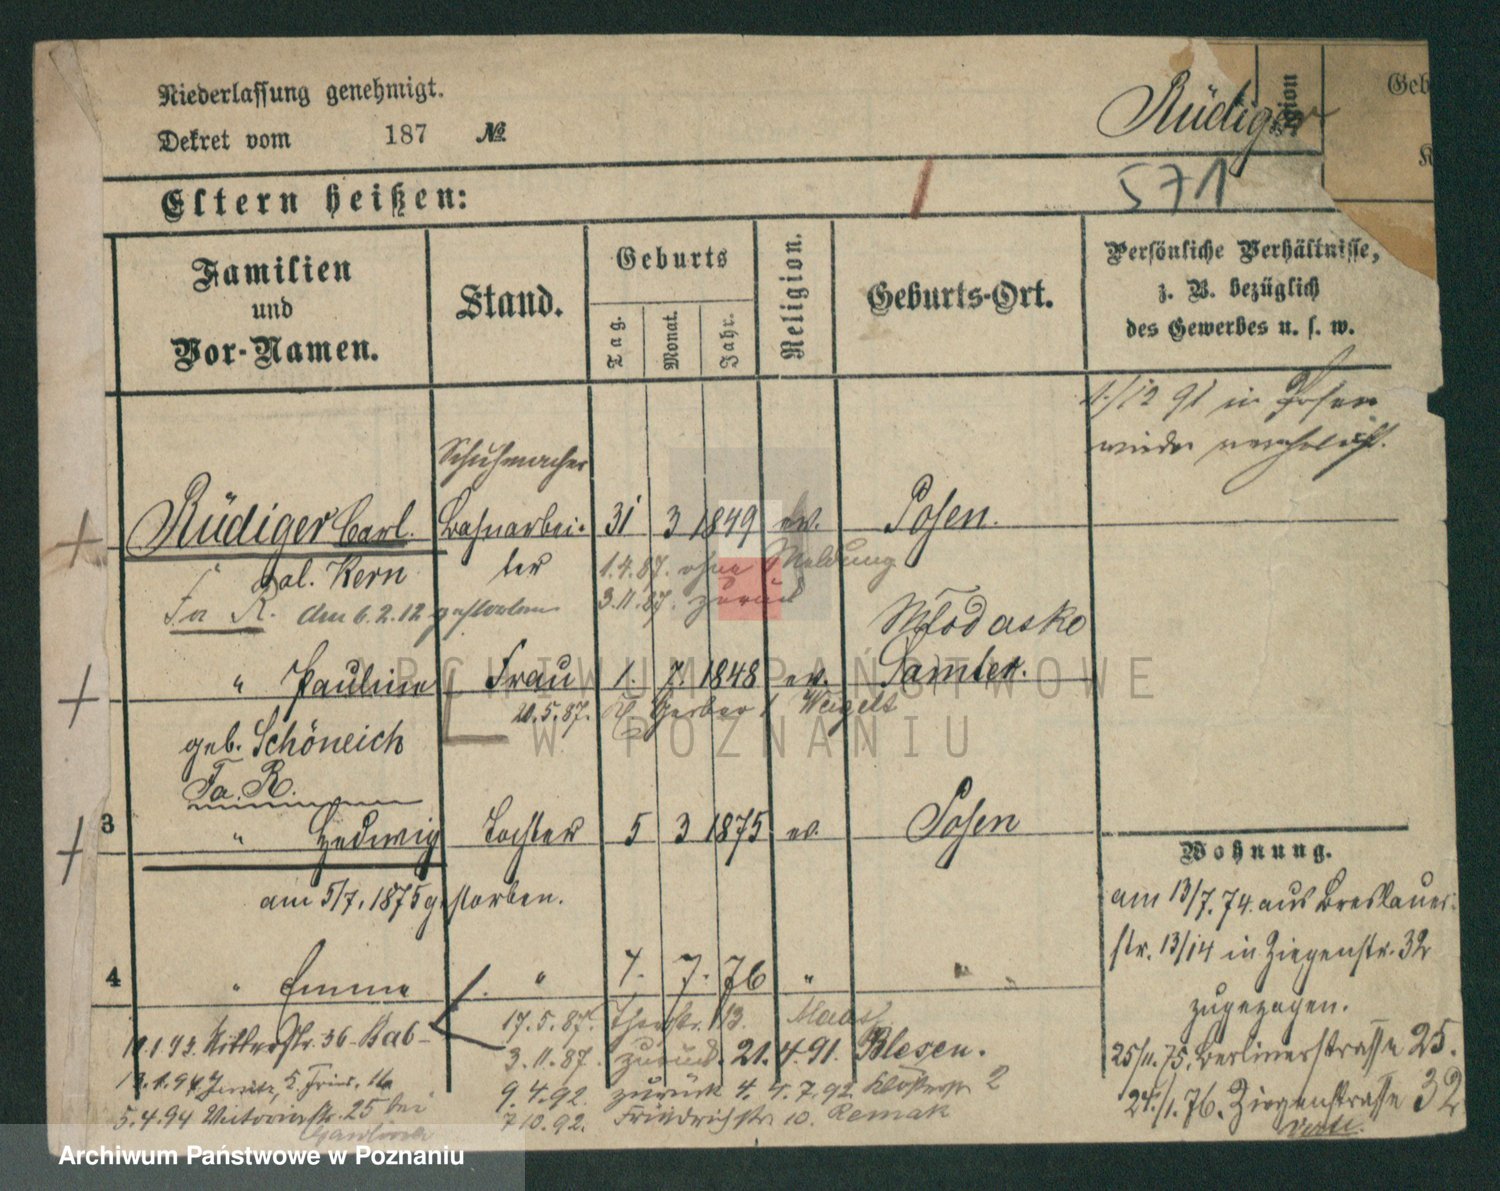 Niederlassung genehmigt.
Dekret vom 187 №
Rüdiger
Religion
Geb
K
571
Eltern heißen:
Familien und Vor-Namen.
Stand.
Geburts
Tag.
Monat.
Jahr.
Religion.
Geburts-Ort.
Persönliche Verhältnisse,
z. B. bezüglich
des Gewerbes u. s. w.
1/12 91 in Posen
wieder verehelicht.
Schuhmacher
Rüdiger Carl. Bahnarbei- 31 3 1849 ev. Posen.
ter
Kern
1.4.87. ohne Meldung
Fa R. am 6.2.12 gestorben
3.11.87. zurück
Młodasko
" Pauline Frau 1. 7. 1848 ev. Samter.
20.5.87. Gerber / Weigelt
geb. Schöneich
Fa. R.
3 " Hedwig Tochter 5 3 1875 ev. Posen
am 5/7. 1875 gestorben.
4 " Emma " 7. 7. 76 " "
17.5.87. 13.
3.11.87. zurück. 21.4.91. Blesen.
9.4.92. zurück 4. 4.7.92 2
7 10.92. Friedrichstr 10. Remak
Ritterstr. 36
5.4.94 Victoriastr. 25 bei
Wohnung.
am 13/7. 74. aus Breslauer-
str. 13/14 in Ziegenstr. 32
zugezogen.
25/11. 75. Berlinerstrasse 25.
24/1. 76. Ziegenstrasse 32
ARCHIWUM PAŃSTWOWE
W POZNANIU
Archiwum Państwowe w Poznaniu